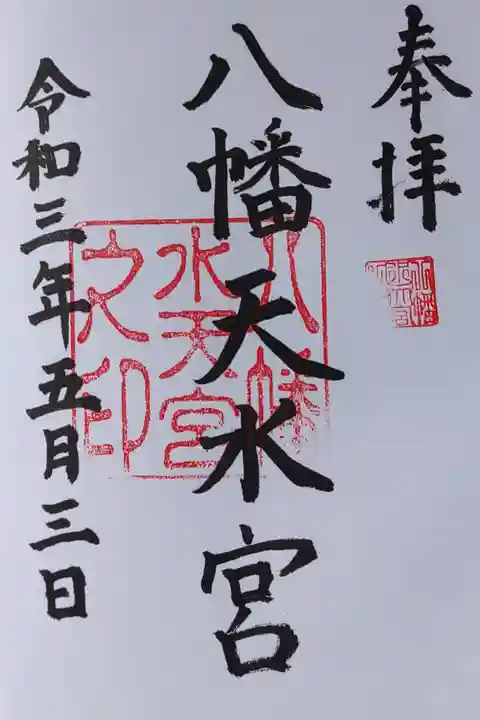 奉拝
八幡天水宮
八幡
水天宮
之印
令和三年五月三日